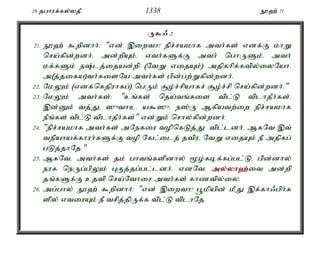 29 தபாரக்கல்லதீ 1338 நூஹ் 71
ருகூஃ 2
21. நூஹ் கூறினார்: "என் இறைவா! நிச்சயமாக அவர்கள் எனக்கு மாறு
செய்கின்றனர். அன்றியும், எவர்களுக்கு அவர் பொருளும், அவர்
மக்களும் நஷ்டத்தையன்றி (வேறு எதையும்) அதிகரிக்கவில்லையோ,
அ(த்தகைய)வர்களையே அவர்கள் பின்பற்றுகின்றனர்.
22. மேலும் (எனக்கெதிராகப்) பெரும் சூழ்ச்சியாகச் சூழ்ச்சி செய்கின்றனர்."
23. மேலும் அவர்கள்: "உங்கள் தெய்வங்களை விட்டு விடாதீர்கள்.
இன்னும் வத்து, ஸுவாஉ யஃஊஸு, நஸ்ரு ஆகியவற்றை நிச்சயமாக
நீங்கள் விட்டு விடாதீர்கள்" என்றும் சொல்கின்றனர்.
24. "நிச்சயமாக அவர்கள் அநேகரை வழிகெடுத்து விட்டனர். ஆகவே இவ்
வநியாயக்காரர்களுக்கு வழி கேட்டைத் தவிர, வேறு எதையும் நீ அதிகப்
படுத்தாதே."
25. ஆகவே, அவர்கள் தம் பாவங்களினால் மூழ்கடிக்கப்பட்டு, பின்னால்
நரக நெருப்பிலும் புகுத்தப்பட்டனர். எனவே, அல்லாஹ்வை அன்றி
தங்களுக்கு உதவி செய்வோரை அவர்கள் காணவில்லை.
26. அப்பால் நூஹ் கூறினார்: "என் இறைவா! பூமியின் மீது இக்காஃபிர்க
ளில் எவரையும் நீ வசித்திருக்க விட்டு விடாதே.